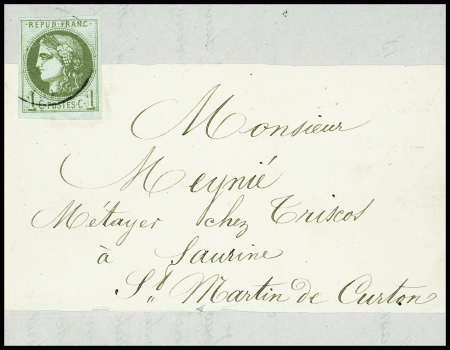 REPUB·FRANC·
1 C·POSTES·C· 1
Monsieur
Meynié
Métayer chez Triscos
à Saurine
St Martin de Curton